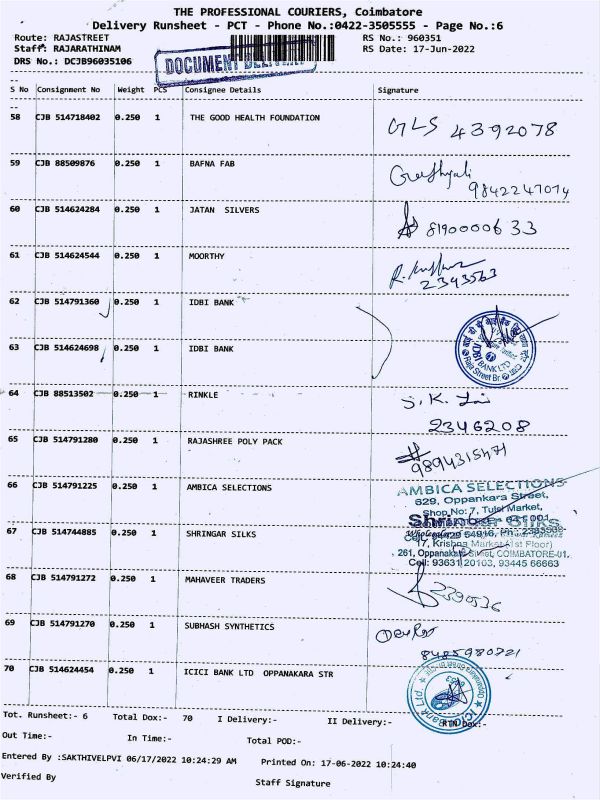 THE PROFESSIONAL COURIERS, Coimbatore
Delivery Runsheet - PCT - Phone No.:0422-3505555 - Page No.:6
Route: RAJASTREET RS No.: 960351
Staff: RAJARATHINAM RS Date: 17-Jun-2022
DRS No.: DCJB96035106
DOCUMENT
S No Consignment No Weight PCS Consignee Details Signature
58 CJB 514718402 0.250 1 THE GOOD HEALTH FOUNDATION GLS 4392078
59 CJB 88509876 0.250 1 BAFNA FAB
9842247074
60 CJB 514624284 0.250 1 JATAN SILVERS 8190000633
61 CJB 514624544 0.250 1 MOORTHY
2343563
62 CJB 514791360 0.250 1 IDBI BANK
63 CJB 514624698 0.250 1 IDBI BANK
IDBI BANK LTD
Raja Street Br.
64 CJB 88513502 0.250 1 RINKLE S.K.
2346208
65 CJB 514791280 0.250 1 RAJASHREE POLY PACK
66 CJB 514791225 0.250 1 AMBICA SELECTIONS
AMBICA SELECTIONS
629, Oppankara Street,
Shop No: 7, Tulsi Market,
67 CJB 514744885 0.250 1 SHRINGAR SILKS
Shringar Silks
17, Krishna Market (1st Floor)
261, Oppanakara Street, COIMBATORE-01.
Cell: 93631 20103, 93445 66663
68 CJB 514791272 0.250 1 MAHAVEER TRADERS
2390536
69 CJB 514791270 0.250 1 SUBHASH SYNTHETICS
70 CJB 514624454 0.250 1 ICICI BANK LTD OPPANAKARA STR
ICICI Bank Ltd
Tot. Runsheet:- 6 Total Dox:- 70 I Delivery:- II Delivery:- RTN Dox:-
Out Time:- In Time:- Total POD:-
Entered By :SAKTHIVELPVI 06/17/2022 10:24:29 AM Printed On: 17-06-2022 10:24:40
Verified By Staff Signature